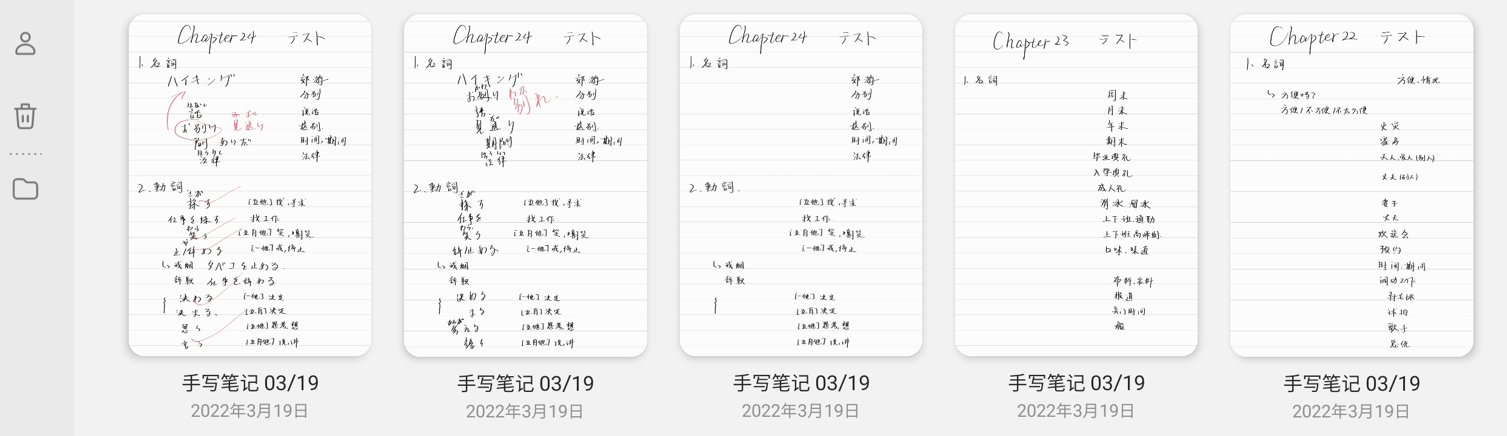 Chapter 24 テスト
1. 名詞
ハイキング 郊游
分别
话 说话
お別り 見送り 送别.
間 あいだ 时间,期间
法律 法律
2. 動詞
探す [五他] 找,寻求
仕事を探す 找工作
笑う [五自他] 笑,嘲笑
止/辞める [一他] 戒,停止
↳ 戒烟 タバコを止める.
辞职 仕事を辞める
决める [一他] 决定
决まる、 [五自] 决定
思う [五他] 思考,想
[五自他] 说,讲
手写笔记 03/19
2022年3月19日
Chapter 24 テスト
1. 名詞
ハイキング 郊游
お別り 別れ 分别
話 说话
見送り 送别.
期間 时间,期间
法律 法律
2. 動詞
探す [五他] 找,寻求
仕事を 找工作
笑う [五自他] 笑,嘲笑
辞/止める [一他] 戒,停止
↳ 戒烟
辞职
决める [一他] 决定
まる [五自] 决定
える [五他] 思考,想
語う [五自他] 说,讲
手写笔记 03/19
2022年3月19日
Chapter 24 テスト
1. 名詞
郊游
分别
说话
送别.
时间,期间
法律
2. 動詞.
[五他] 找,寻求
找工作
[五自他] 笑,嘲笑
[一他] 戒,停止
↳ 戒烟
辞职
[一他] 决定
[五自] 决定
[五他] 思考,想
[五自他] 说,讲
手写笔记 03/19
2022年3月19日
Chapter 23 テスト
1. 名詞
周末
月末
年末
期末
毕业典礼
入学典礼
成人礼
滑冰,溜冰
上下班,通勤
上下班高峰期
口味,味道
布料,衣料
报道
关门时间
船
手写笔记 03/19
2022年3月19日
Chapter 22 テスト
1. 名詞
方便、情况
↳ 方便吗?
方便/不方便/不太方便
火灾
夫人,家人(别人)
丈夫(别人)
妻子
丈夫
欢送会
预约
时间,期间
乒乓球
球拍
歌手
手写笔记 03/19
2022年3月19日